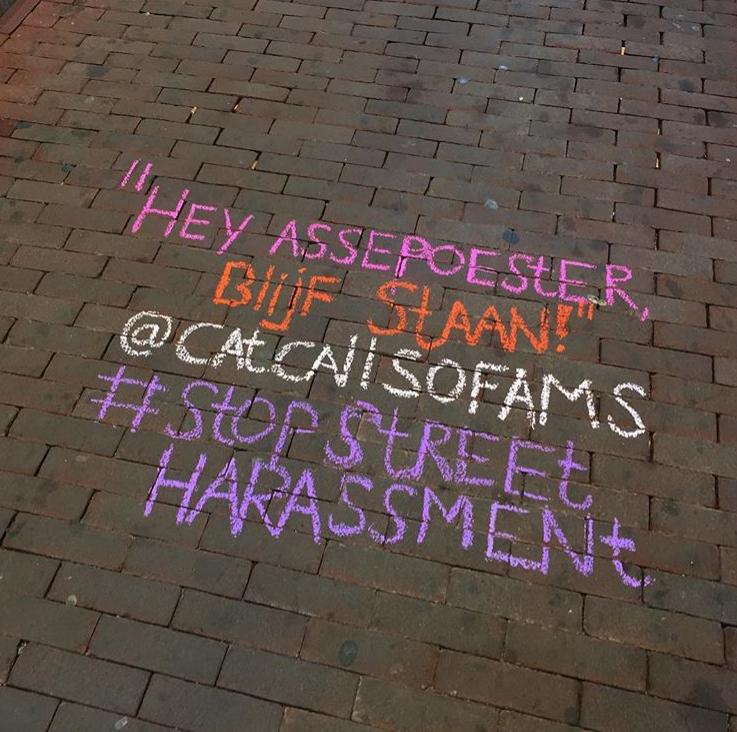 "HEY ASSEPOESTER,
BlijF StAAN!"
@CAtCAllSOFAMS
#StOP StREEt
HARASSMENt